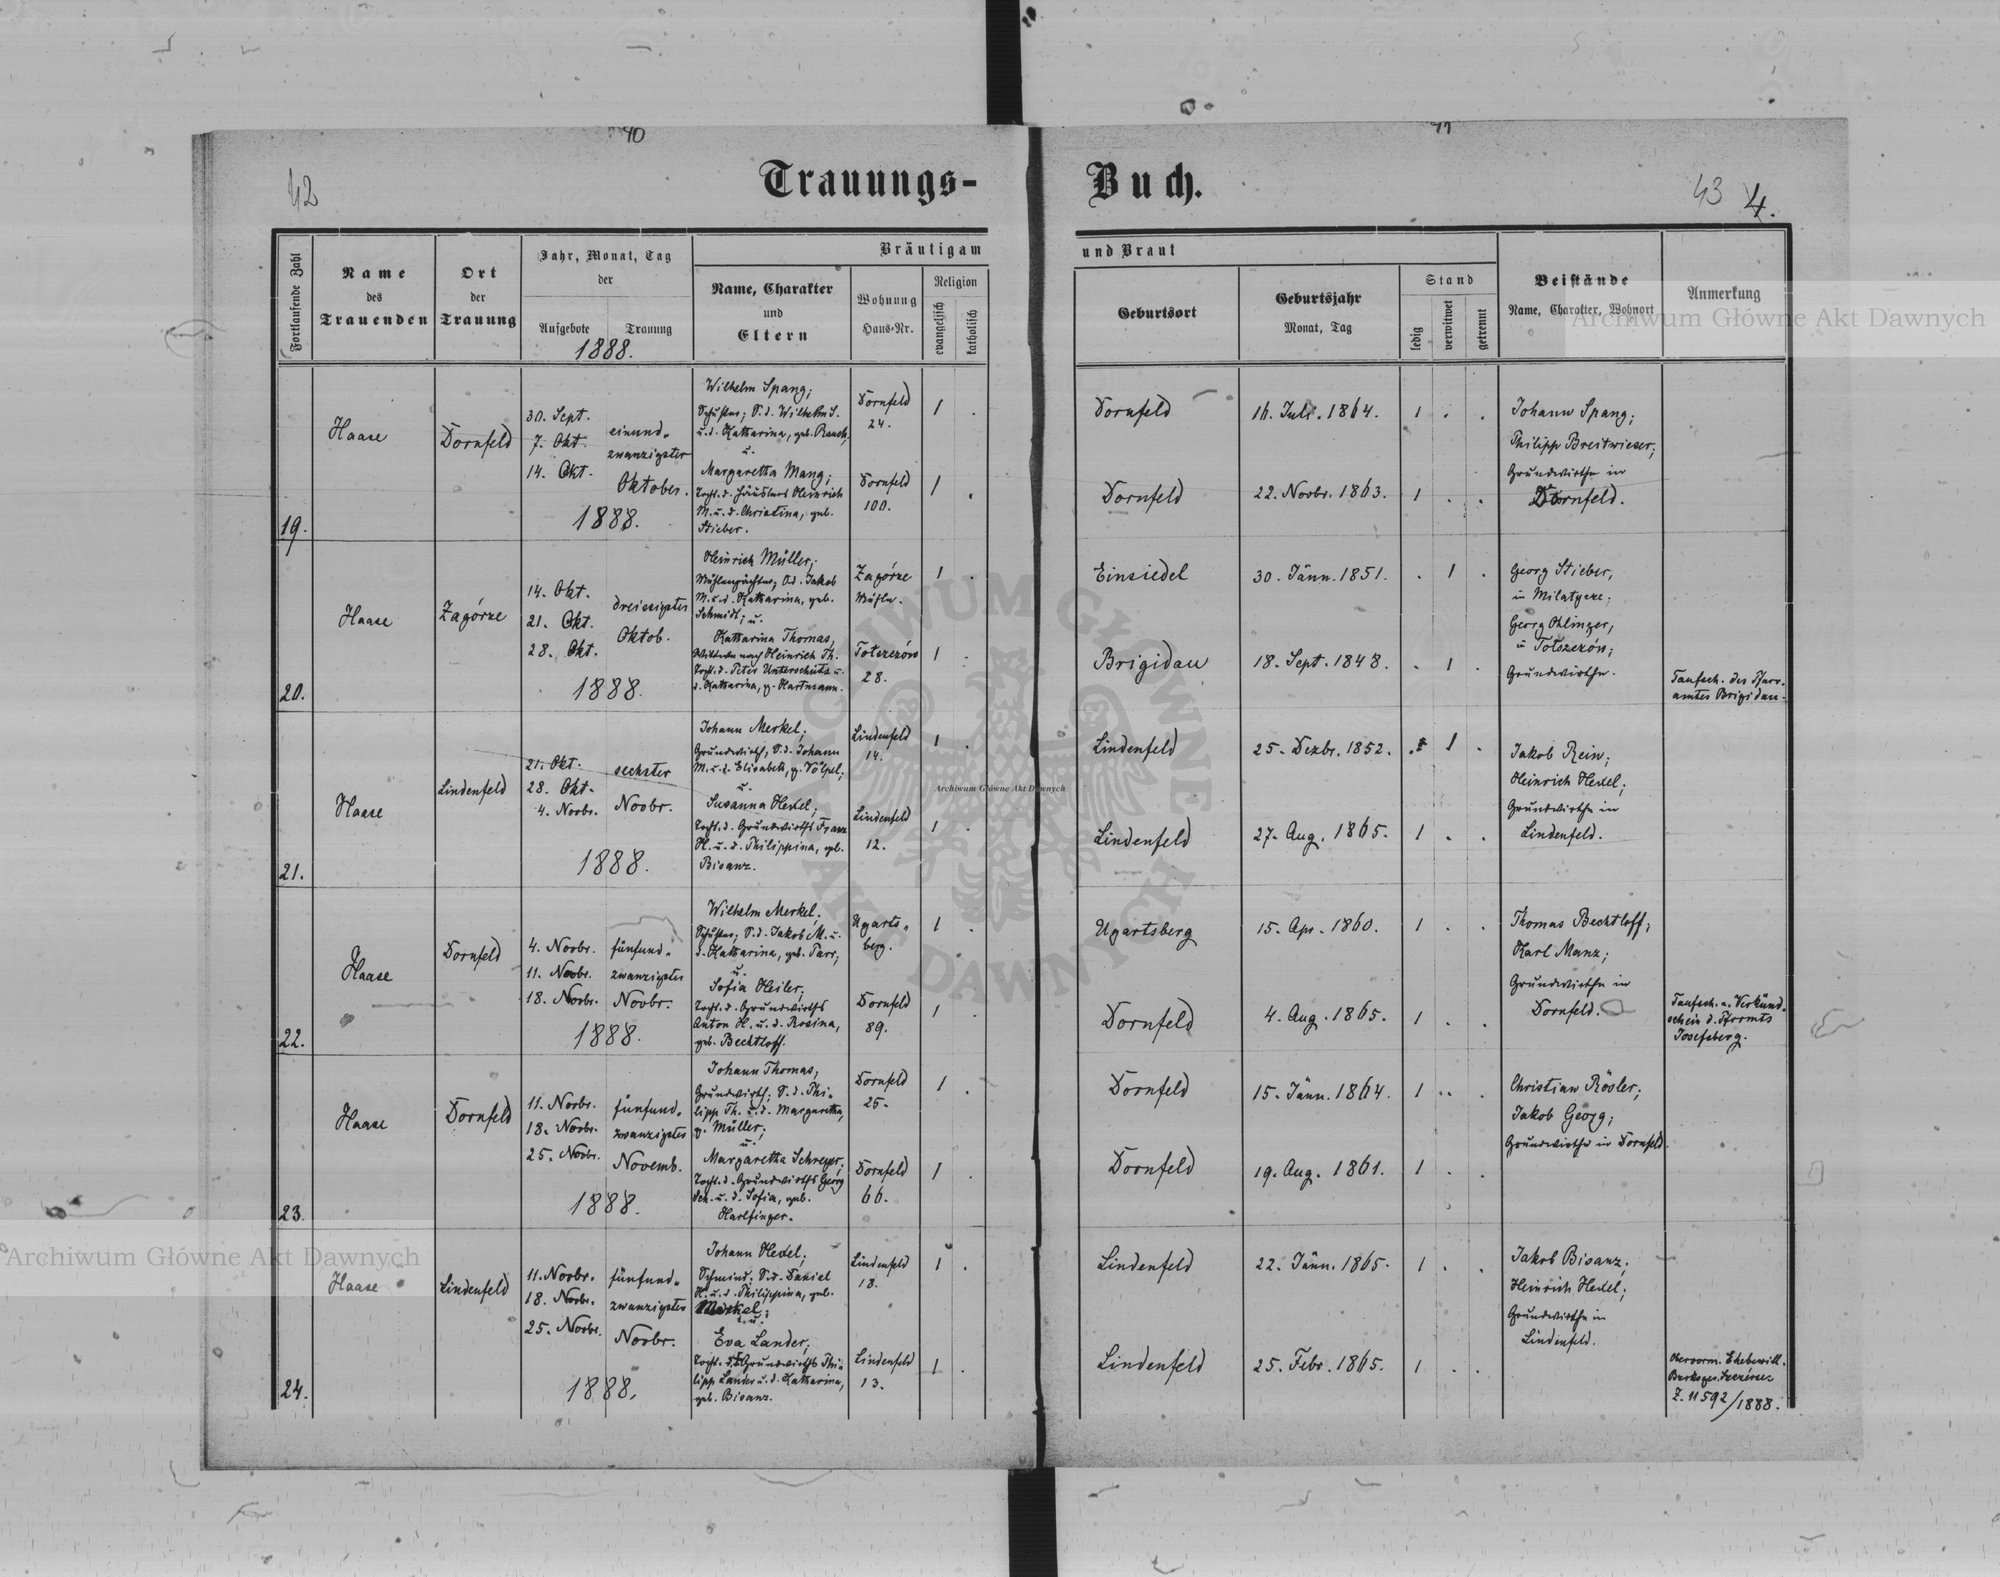 40
41
42
Trauungs-
Buch.
43
4.
Fortlaufende Zahl
Name
des
Trauenden
Ort
der
Trauung
Jahr, Monat, Tag
der
Aufgebote
Trauung
1888.
Bräutigam
Name, Charakter
und
Eltern
Wohnung
Haus-Nr.
Religion
evangelisch
katholisch
und Braut
Geburtsort
Geburtsjahr
Monat, Tag
Stand
ledig
verwitwet
getrennt
Beistände
Name, Charakter, Wohnort
Anmerkung
Archiwum Główne Akt Dawnych
19.
Haase
Dornfeld
30. Sept.
7. Okt.
14. Okt.
einund-
zwanzigster
Oktober.
1888.
Wilhelm Spang;
Schuster; S. d. Wilhelm S.
u. d. Katharina, geb. Rauch,
u.
Margaretha Mang;
Tocht. d. Häuslers Heinrich
M. u. d. Christina, geb.
Stieber.
Dornfeld
24.
1 .
Dornfeld
100.
1 .
Dornfeld
16. Juli. 1864.
1 . .
Dornfeld
22. Novbr. 1863.
1 . .
Johann Spang;
Philipp Breitwieser;
Grundwirthe in
Dornfeld.
20.
Haase
Zagórze
14. Okt.
21. Okt.
28. Okt.
dreissigster
Oktob.
1888.
Heinrich Müller;
Mühlenpächter; S. d. Jakob
M. u. d. Katharina, geb.
Schmidt; u.
Katharina Thomas,
Wittwe nach Heinrich Th.
Tocht. d. Peter Unterschütz u.
d. Katharina, g. Hartmann.
Zagórze
Mühle.
1 .
Tołszczów
28.
1 .
Einsiedel
30. Jänn. 1851.
. 1 .
Brigidau
18. Sept. 1848.
. 1 .
Georg Stieber,
in Milatycze;
Georg Ohlinger,
in Tołszczów;
Grundwirthe.
Taufsch. des Pfarr-
amtes Brigidau.
21.
Haase
Lindenfeld
21. Okt.
28. Okt.
4. Novbr.
sechster
Novbr.
1888.
Johann Merkel;
Grundwirth, S. d. Johann
M. u. d. Elisabeth, g. Völpel;
u.
Susanna Hexel;
Tocht. d. Grundwirths Franz
H. u. d. Philippina, geb.
Bisanz.
Lindenfeld
14.
1 .
Lindenfeld
12.
1 .
Lindenfeld
25. Dezbr. 1852.
. 1 .
Lindenfeld
27. Aug. 1865.
1 . .
Jakob Rein;
Heinrich Hexel;
Grundwirthe in
Lindenfeld.
Archiwum Główne Akt Dawnych
ARCHIWUM GŁÓWNE AKT DAWNYCH
22.
Haase
Dornfeld
4. Novbr.
11. Novbr.
18. Novbr.
fünfund-
zwanzigster
Novbr.
1888.
Wilhelm Merkel;
Schuster; S. d. Jakob M. u.
d. Katharina, geb. Parr;
u.
Sofia Heiler;
Tocht. d. Grundwirths
Anton H. u. d. Rosina,
geb. Bechtloff.
Ugarts-
berg.
1 .
Dornfeld
89.
1 .
Ugartsberg
15. Apr. 1860.
1 . .
Dornfeld
4. Aug. 1865.
1 . .
Thomas Bechtloff;
Karl Manz;
Grundwirthe in
Dornfeld.
Taufsch. u. Verkünd-
schein d. Pfarramts
Josefsberg.
23.
Haase
Dornfeld
11. Novbr.
18. Novbr.
25. Novbr.
fünfund-
zwanzigster
Novemb.
1888.
Johann Thomas,
Grundwirth; S. d. Phi-
lipp Th. u. d. Margaretha,
g. Müller;
u.
Margaretha Schreyer;
Tocht. d. Grundwirths Georg
Sch. u. d. Sofia, geb.
Harlfinger.
Dornfeld
25.
1 .
Dornfeld
66.
1 .
Dornfeld
15. Jänn. 1864.
1 . .
Dornfeld
19. Aug. 1861.
1 . .
Christian Rösler;
Jakob Georg;
Grundwirthe in Dornfeld.
24.
Archiwum Główne Akt Dawnych
Haase
Lindenfeld
11. Novbr.
18. Novbr.
25. Novbr.
fünfund-
zwanzigster
Novbr.
1888.
Johann Hexel;
Schmied; S. d. Daniel
H. u. d. Philippina, geb.
Merkel;
u.
Eva Lander;
Tocht. d. Grundwirths Phi-
lipp Lander u. d. Katharina,
geb. Bisanz.
Lindenfeld
18.
1 .
Lindenfeld
13.
1 .
Lindenfeld
22. Jänn. 1865.
1 . .
Lindenfeld
25. Febr. 1865.
1 . .
Jakob Bisanz;
Heinrich Hexel;
Grundwirthe in
Lindenfeld.
Obervorm. Ehebewill.
Bezksger. Szczerzec
Z. 11592/1888.